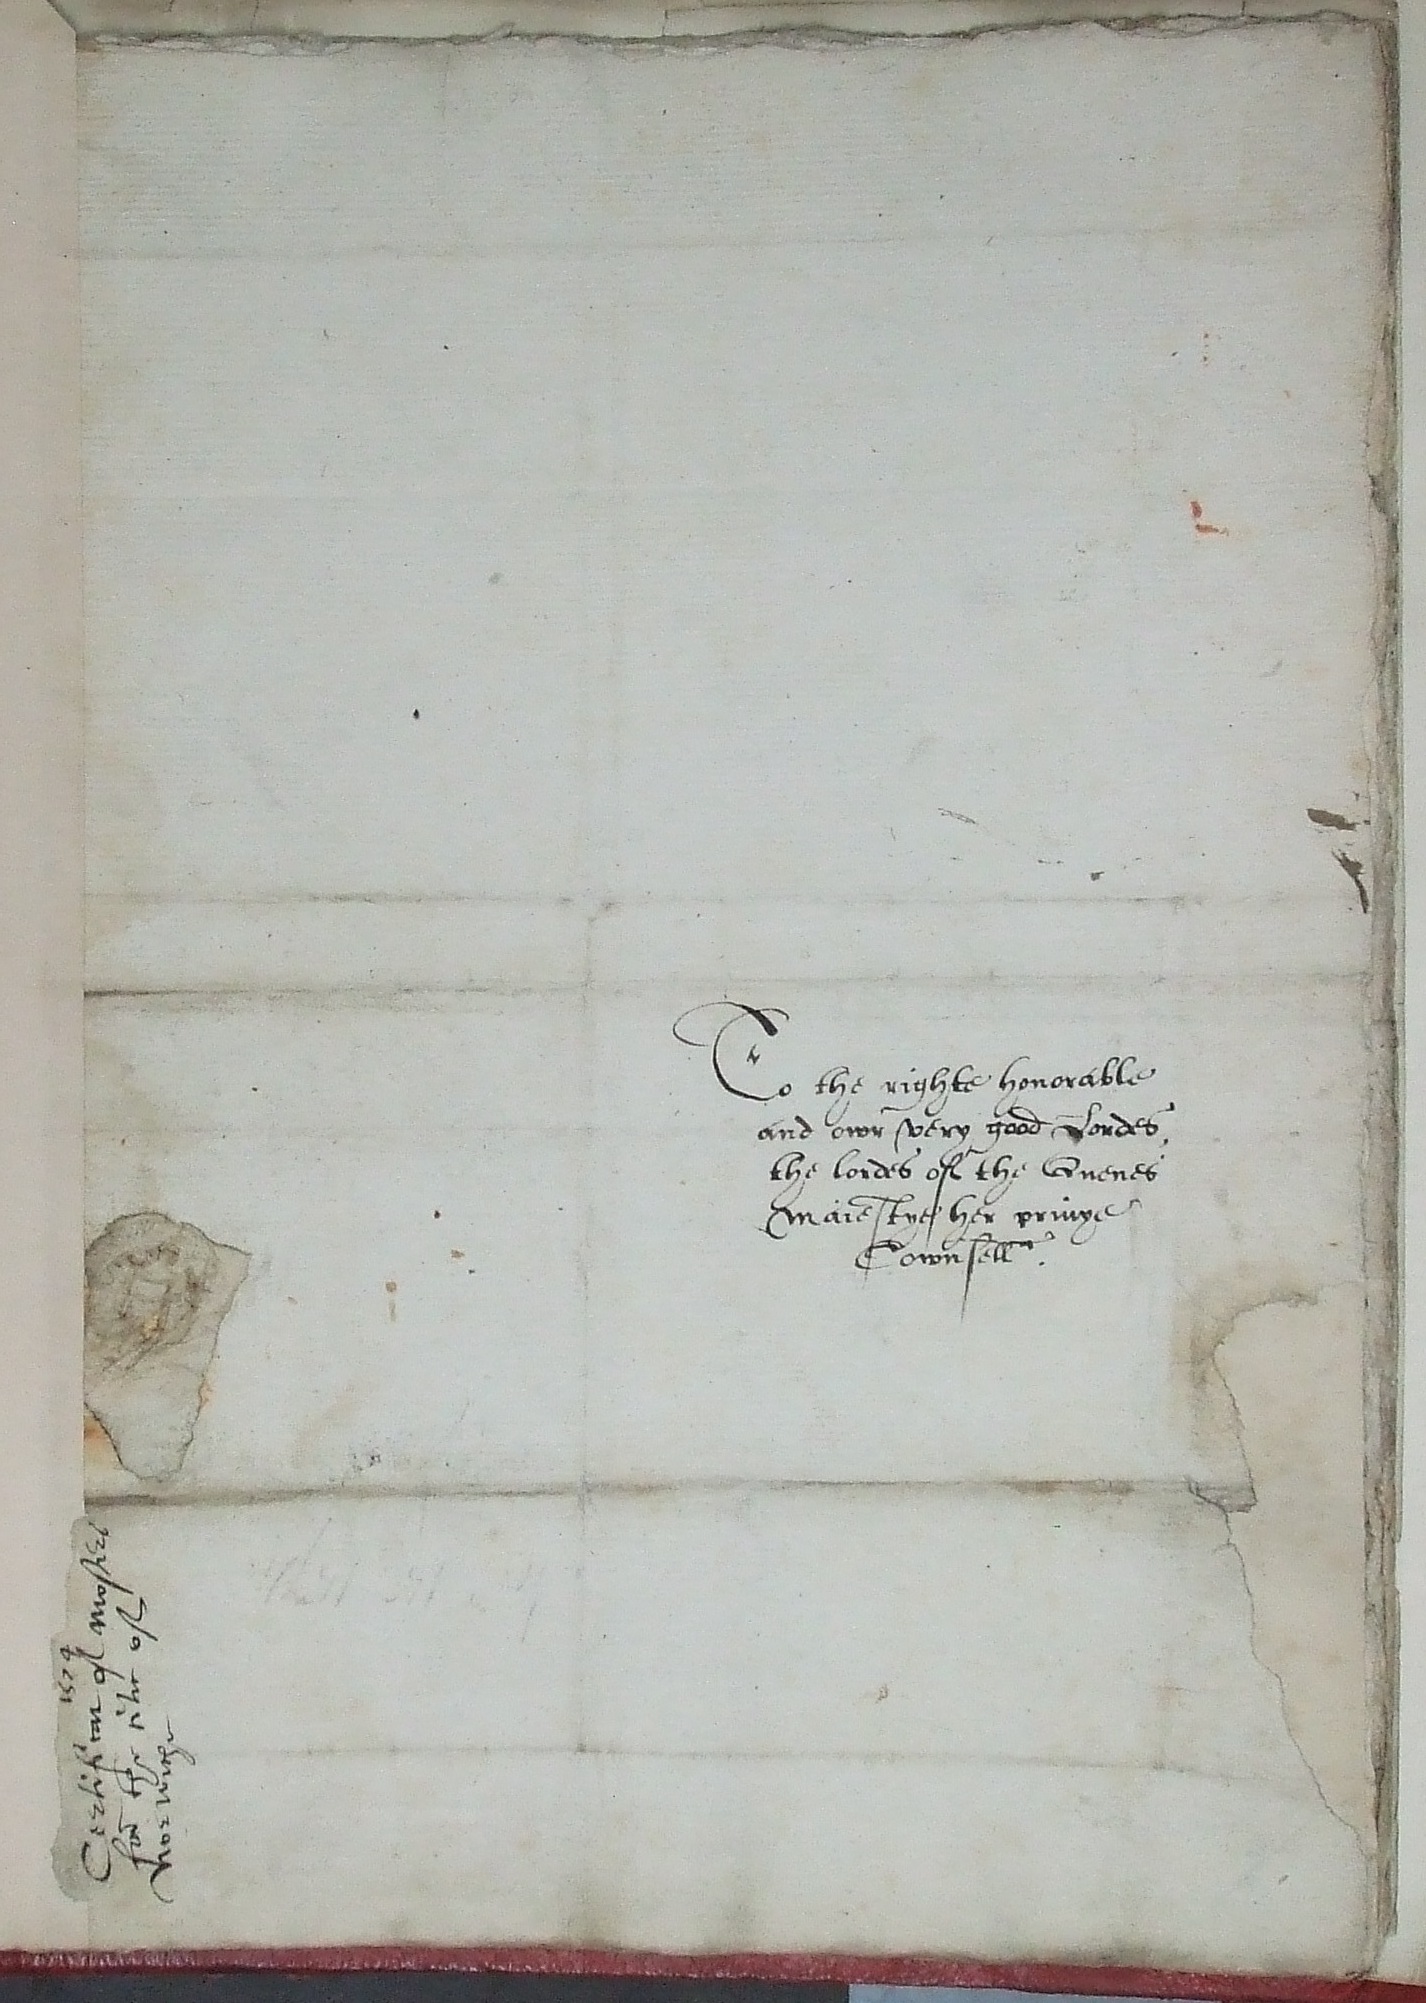 To the righte honorable
and owr very good Lordes,
the lordes of the Quenes
Maiestye her privye
Cownsell.
1574
Certificat of
for the citie of
Norwiche